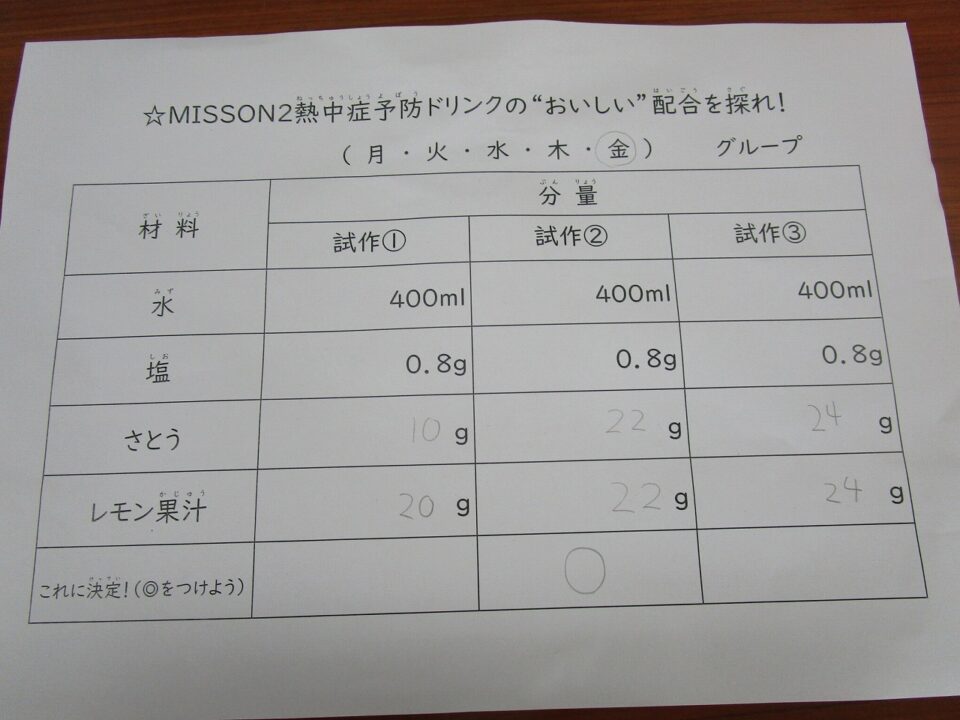 ☆MISSON2熱中症予防ドリンクの“おいしい”配合を探れ!
(月・火・水・木・金) グループ
材料 分量
試作① 試作② 試作③
水 400ml 400ml 400ml
塩 0.8g 0.8g 0.8g
さとう 10 g 22 g 24 g
レモン果汁 20 g 22 g 24 g
これに決定!(◎をつけよう) ○